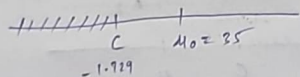 C   μ₀ = 35
-1.729